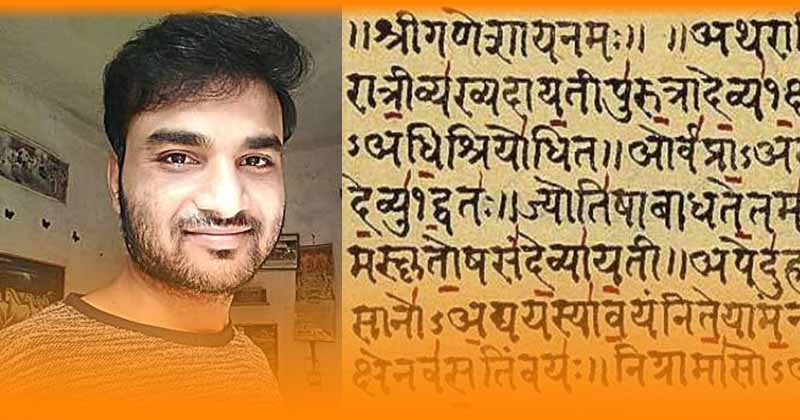 ॥श्रीगणेशायनमः॥ ॥अथरा
रात्रीव्यख्यदायतीपुरुत्रादेव्य१क्ष
ऽअधिश्रियोधित॥ओर्वप्राऽअ
देव्यु१द्वतः॥ज्योतिषाबाधतेतम
मस्कृतोषसंदेव्यायती॥अपेदुहा
सानोऽअद्ययस्यावयंनितेयाम
क्षेनवसतिंवयः॥निग्रामासोऽ